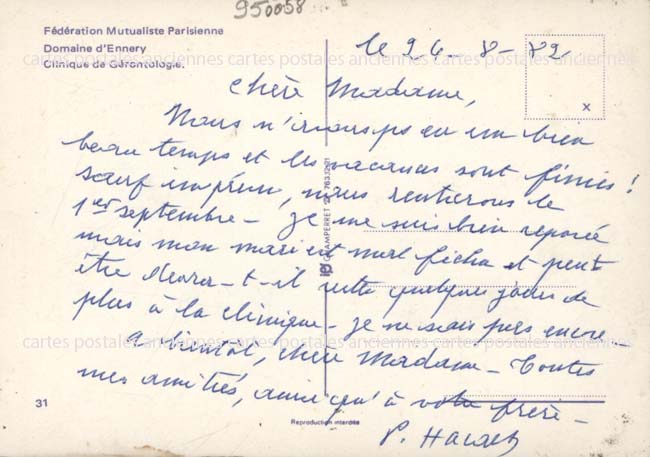 950058
Fédération Mutualiste Parisienne
Domaine d'Ennery
Clinique de Gérontologie.
le 26-8-82
cartes postales anciennes cartes postales anciennes cartes postales anciennes
chère Madame,
Nous n'avons pas eu un bien
beau temps et les vacances sont finies !
sauf imprévu, nous rentrerons le
1er septembre - je me suis bien reposée
mais mon mari est mal fichu et peut
être devra-t-il rester quelques jours de
plus à la clinique - je ne sais pas encore
cartes postales anciennes cartes postales anciennes cartes postales anciennes
a bientôt, chère Madame - Toutes
mes amitiés, ainsi qu'à votre frère -
P.
31
Reproduction interdite
CHAMPERRET
x